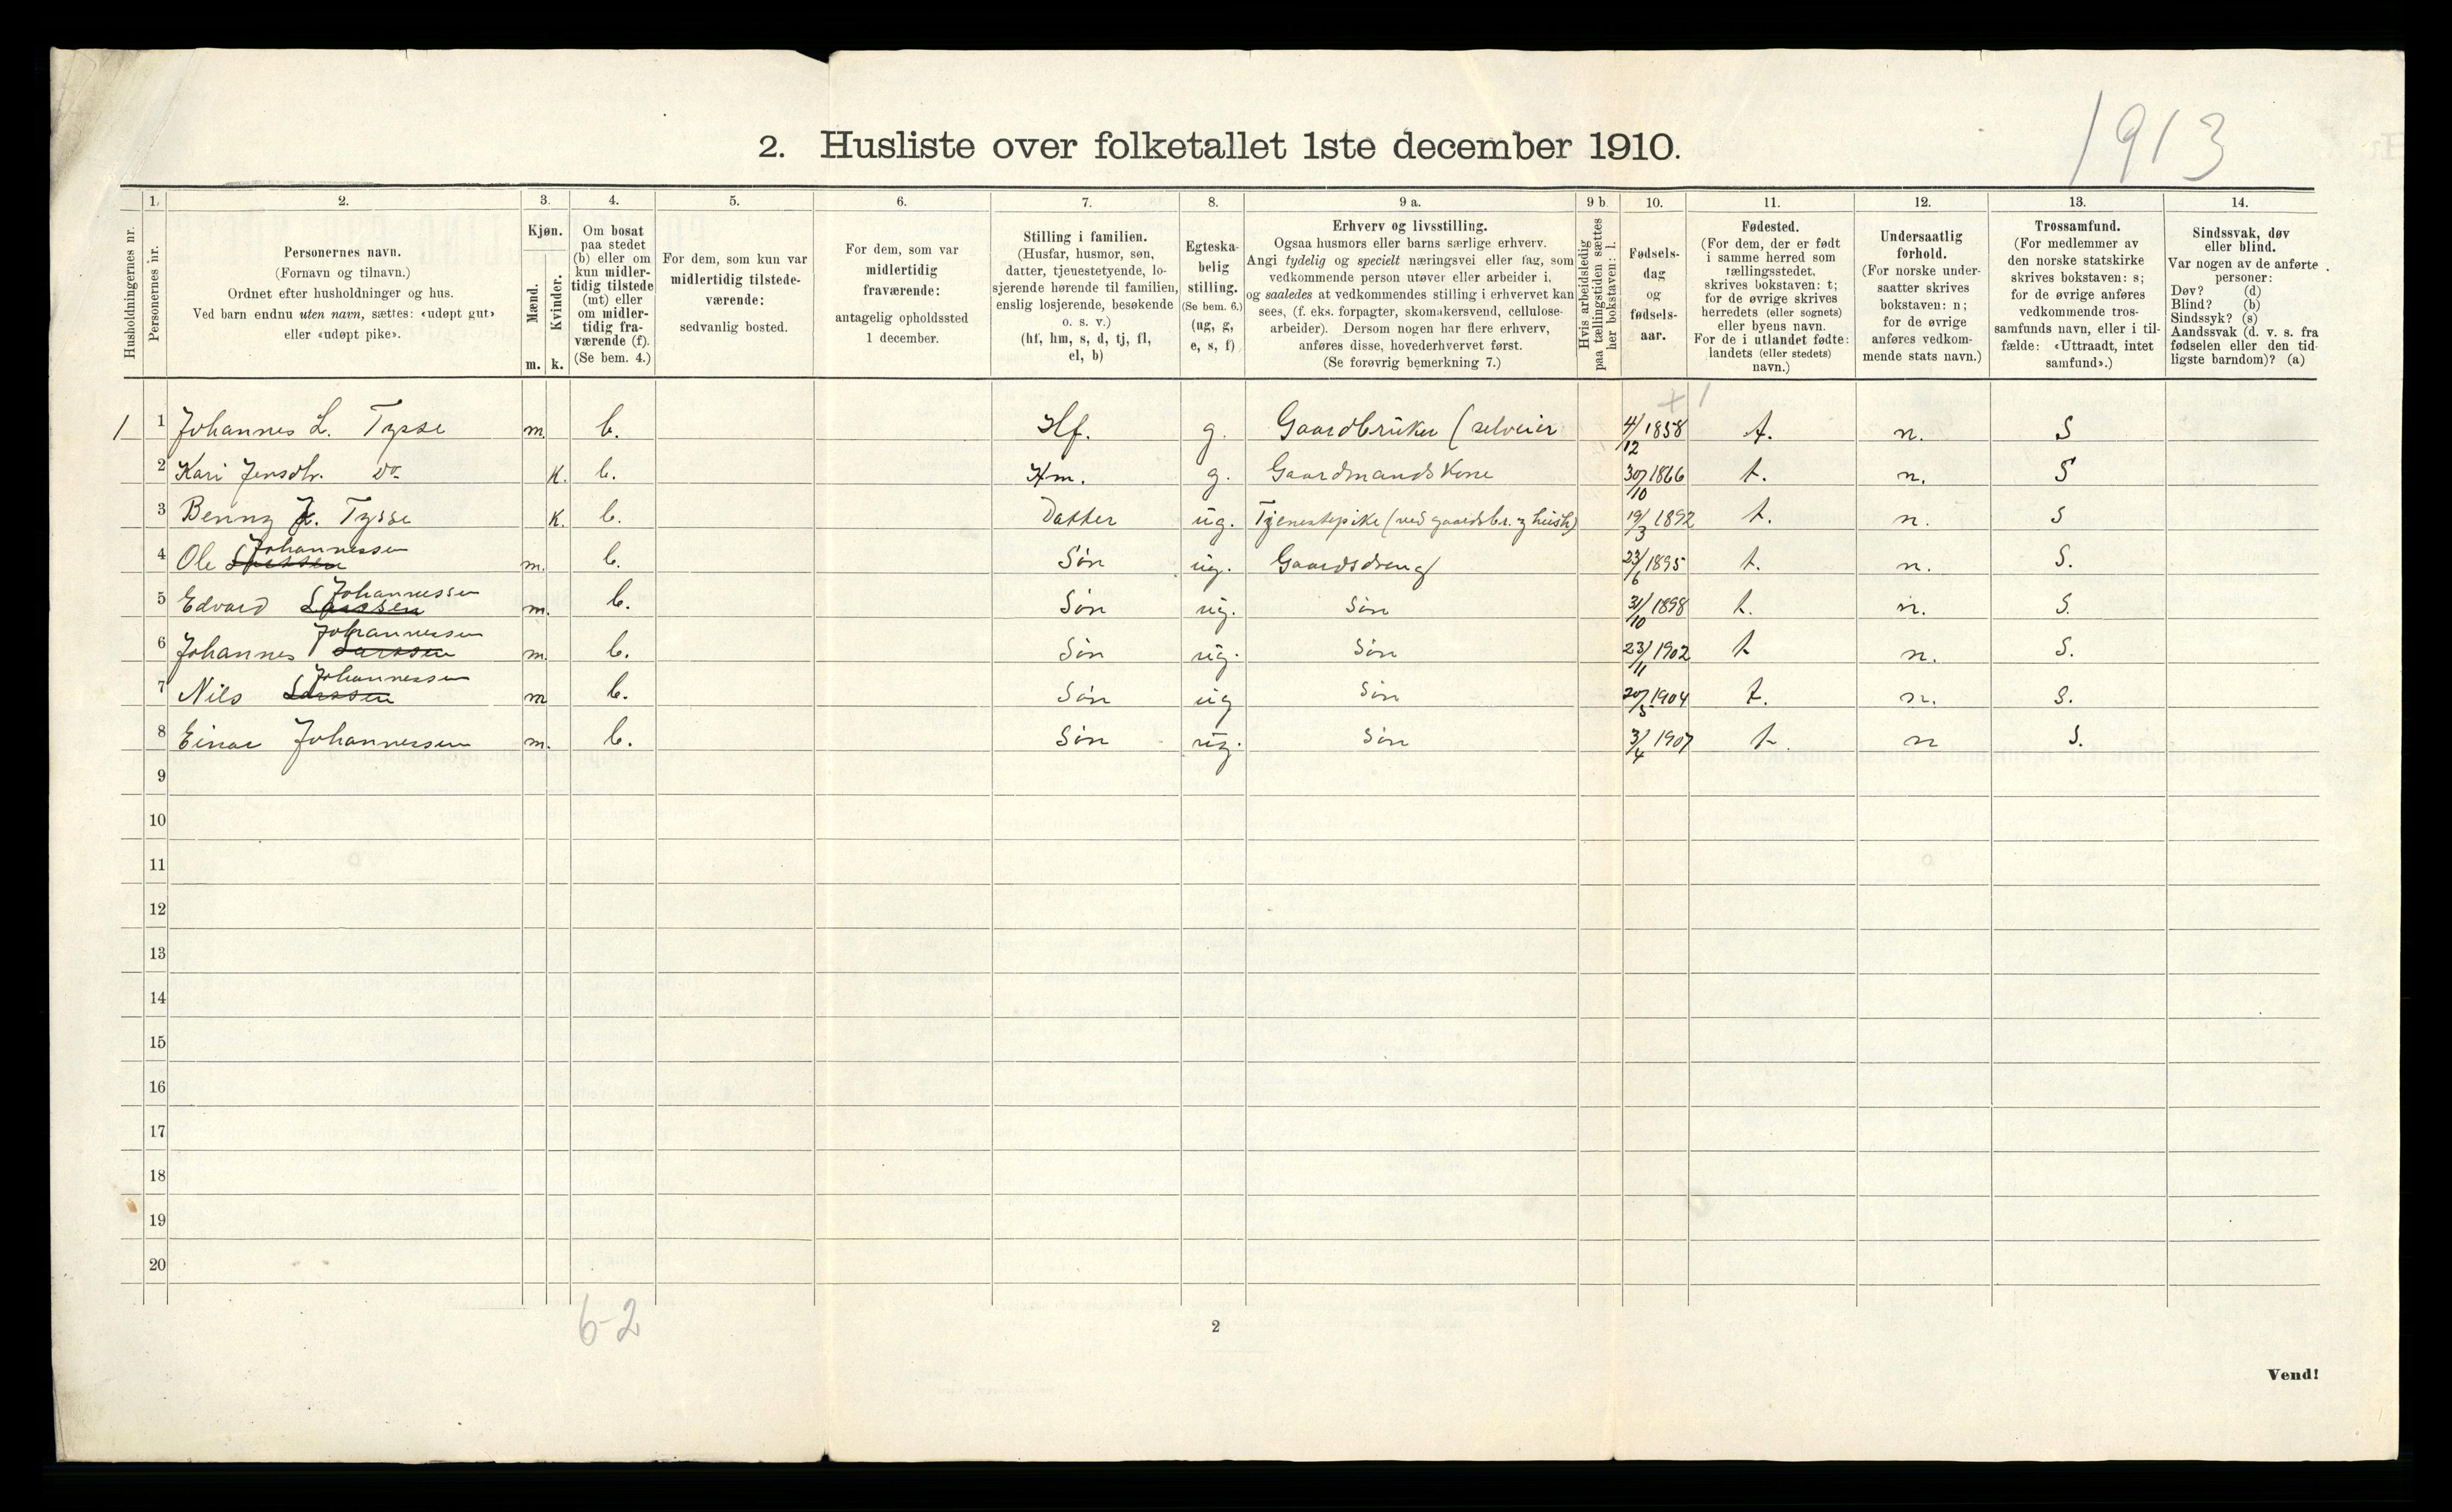 1913
2. Husliste over folketallet 1ste december 1910.
Husholdningernes nr.
1.
Personernes nr.
2.
Personernes navn.
(Fornavn og tilnavn.)
Ordnet efter husholdninger og hus.
Ved barn endnu uten navn, sættes: «udøpt gut»
eller «udøpt pike».
3.
Kjøn.
Mænd.
Kvinder.
m. k.
4.
Om bosat
paa stedet
(b) eller om
kun midler-
tidig tilstede
(mt) eller
om midler-
tidig fra-
værende (f).
(Se bem. 4.)
5.
For dem, som kun var
midlertidig tilstede-
værende:
sedvanlig bosted.
6.
For dem, som var
midlertidig
fraværende:
antagelig opholdssted
1 december.
7.
Stilling i familien.
(Husfar, husmor, søn,
datter, tjenestetyende, lo-
sjerende hørende til familien,
enslig losjerende, besøkende
o. s. v.)
(hf, hm, s, d, tj, fl,
el, b)
8.
Egteska-
belig
stilling.
(Se bem. 6.)
(ug, g,
e, s, f)
9 a.
Erhverv og livsstilling.
Ogsaa husmors eller barns særlige erhverv.
Angi tydelig og specielt næringsvei eller fag, som
vedkommende person utøver eller arbeider i,
og saaledes at vedkommendes stilling i erhvervet kan
sees, (f. eks. forpagter, skomakersvend, cellulose-
arbeider). Dersom nogen har flere erhverv,
anføres disse, hovederhvervet først.
(Se forøvrig bemerkning 7.)
9 b.
Hvis arbeidsledig
paa tællingstiden sættes
her bokstaven: l.
10.
Fødsels-
dag
og
fødsels-
aar.
11.
Fødested.
(For dem, der er født
i samme herred som
tællingsstedet,
skrives bokstaven: t;
for de øvrige skrives
herredets (eller sognets)
eller byens navn.
For de i utlandet fødte:
landets (eller stedets)
navn.)
12.
Undersaatlig
forhold.
(For norske under-
saatter skrives
bokstaven: n;
for de øvrige
anføres vedkom-
mende stats navn.)
13.
Trossamfund.
(For medlemmer av
den norske statskirke
skrives bokstaven: s;
for de øvrige anføres
vedkommende tros-
samfunds navn, eller i til-
fælde: «Uttraadt, intet
samfund».)
14.
Sindssvak, døv
eller blind.
Var nogen av de anførte
personer:
Døv? (d)
Blind? (b)
Sindssyk? (s)
Aandssvak (d. v. s. fra
fødselen eller den tid-
ligste barndom)? (a)
+ 1
1 1 Johannes L. Tysse m. b. Hf. g. Gaardbruker (selveier 4/12 1858 t. n. S
2 Kari Jensdtr. Do k. b. Hm. g. Gaardmandskone 30/10 1866 t. n. S
3 Benny J. Tysse k. b. Datter ug. Tjenestepike (ved gaardsbr. og hush) 19/3 1892 t. n. S
4 Ole Larssen Johannessen m. b. Søn ug. Gaardsdreng 23/6 1895 t. n. S.
5 Edvard Larssen Johannessen m. b. Søn ug. Søn 31/10 1898 t. n. S.
6 Johannes Larssen Johannessen m. b. Søn ug. Søn 23/11 1902 t n. S.
7 Nils Larssen Johannessen m b. Søn ug Søn 20/5 1904 t. n. S.
8 Einar Johannessen m. b. Søn ug. Søn 3/4 1907 t. n S.
9
10
11
12
13
14
15
16
17
18
19
20
6-2
2
Vend!